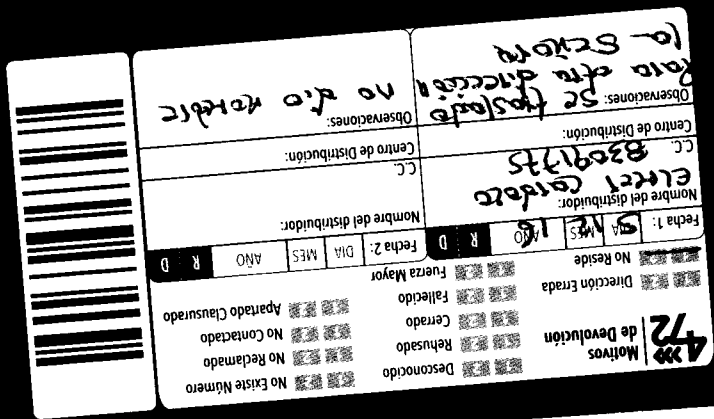 472
Motivos
de Devolución
Desconocido
Rehusado
Cerrado
Fallecido
Fuerza Mayor
No Existe Número
No Reclamado
No Contactado
Apartado Clausurado
Dirección Errada
No Reside
Fecha 1: DIA MES AÑO R D
9 12 16
Nombre del distribuidor:
C.C. 83091775
Centro de Distribución:
Observaciones: Se traslado
Para otra dirección
la Señora
Fecha 2: DIA MES AÑO R D
Nombre del distribuidor:
C.C.
Centro de Distribución:
Observaciones:
no dio nombre